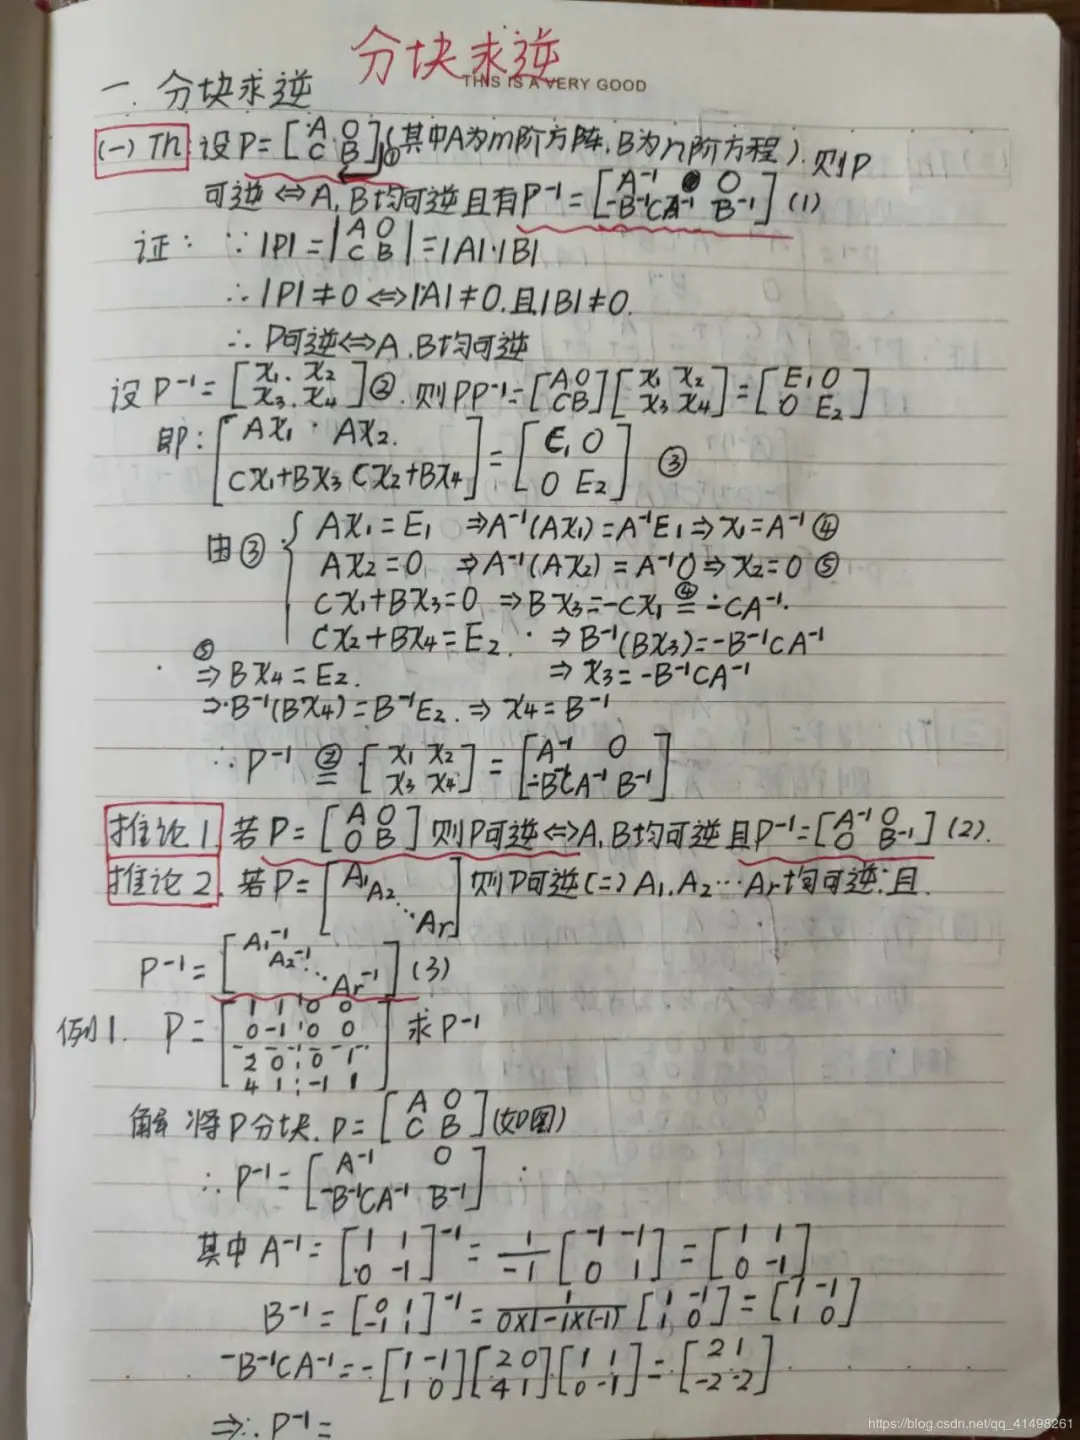 分块求逆
THIS IS A VERY GOOD
一. 分块求逆
(一) Th 设P=[A O; C B]① (其中A为m阶方阵,B为n阶方程). 则P
可逆⇔A,B均可逆且有P⁻¹=[A⁻¹ O; -B⁻¹CA⁻¹ B⁻¹] (1)
证: ∵|P|=|A O; C B|=|A|·|B|
∴|P|≠0⇔|A|≠0.且|B|≠0.
∴P可逆⇔A,B均可逆
设P⁻¹=[x₁. x₂; x₃. x₄]②. 则PP⁻¹=[A O; C B][x₁ x₂; x₃ x₄]=[E₁ O; O E₂]
即:[Ax₁ · Ax₂.; Cx₁+Bx₃ Cx₂+Bx₄]=[E₁ O; O E₂] ③
由③{ Ax₁=E₁ ⇒A⁻¹(Ax₁)=A⁻¹E₁⇒x₁=A⁻¹ ④
Ax₂=0 ⇒A⁻¹(Ax₂)=A⁻¹0⇒x₂=0 ⑤
Cx₁+Bx₃=0 ⇒Bx₃=-Cx₁ ④= -CA⁻¹.
Cx₂+Bx₄=E₂. ⇒B⁻¹(Bx₃)=-B⁻¹CA⁻¹
⑤⇒Bx₄=E₂. ⇒x₃=-B⁻¹CA⁻¹
⇒B⁻¹(Bx₄)=B⁻¹E₂.⇒x₄=B⁻¹
∴P⁻¹ ②= [x₁ x₂; x₃ x₄]=[A⁻¹ O; -B⁻¹CA⁻¹ B⁻¹]
推论1 若P=[A O; O B]则P可逆⇔A,B均可逆且P⁻¹=[A⁻¹ O; O B⁻¹](2).
推论2. 若P=[A₁ A₂ ⋱ Ar]则P可逆(=)A₁,A₂⋯Ar均可逆.且
P⁻¹=[A₁⁻¹ A₂⁻¹ ⋱ Ar⁻¹](3)
例1. P=[1 1 0 0; 0 -1 0 0; 2 0 0 1; 4 1 -1 1] 求P⁻¹
解 将P分块.P=[A O; C B](如图)
∴P⁻¹=[A⁻¹ O; -B⁻¹CA⁻¹ B⁻¹]
其中A⁻¹=[1 1; 0 -1]⁻¹=1/-1[-1 -1; 0 1]=[1 1; 0 -1]
B⁻¹=[0 1; -1 1]⁻¹=1/0×1-1×(-1)[1 -1; 1 0]=[1 -1; 1 0]
-B⁻¹CA⁻¹=-[1 -1; 1 0][2 0; 4 1][1 1; 0 -1]=[2 1; -2 -2]
⇒∴P⁻¹=
https://blog.csdn.net/qq_41498261